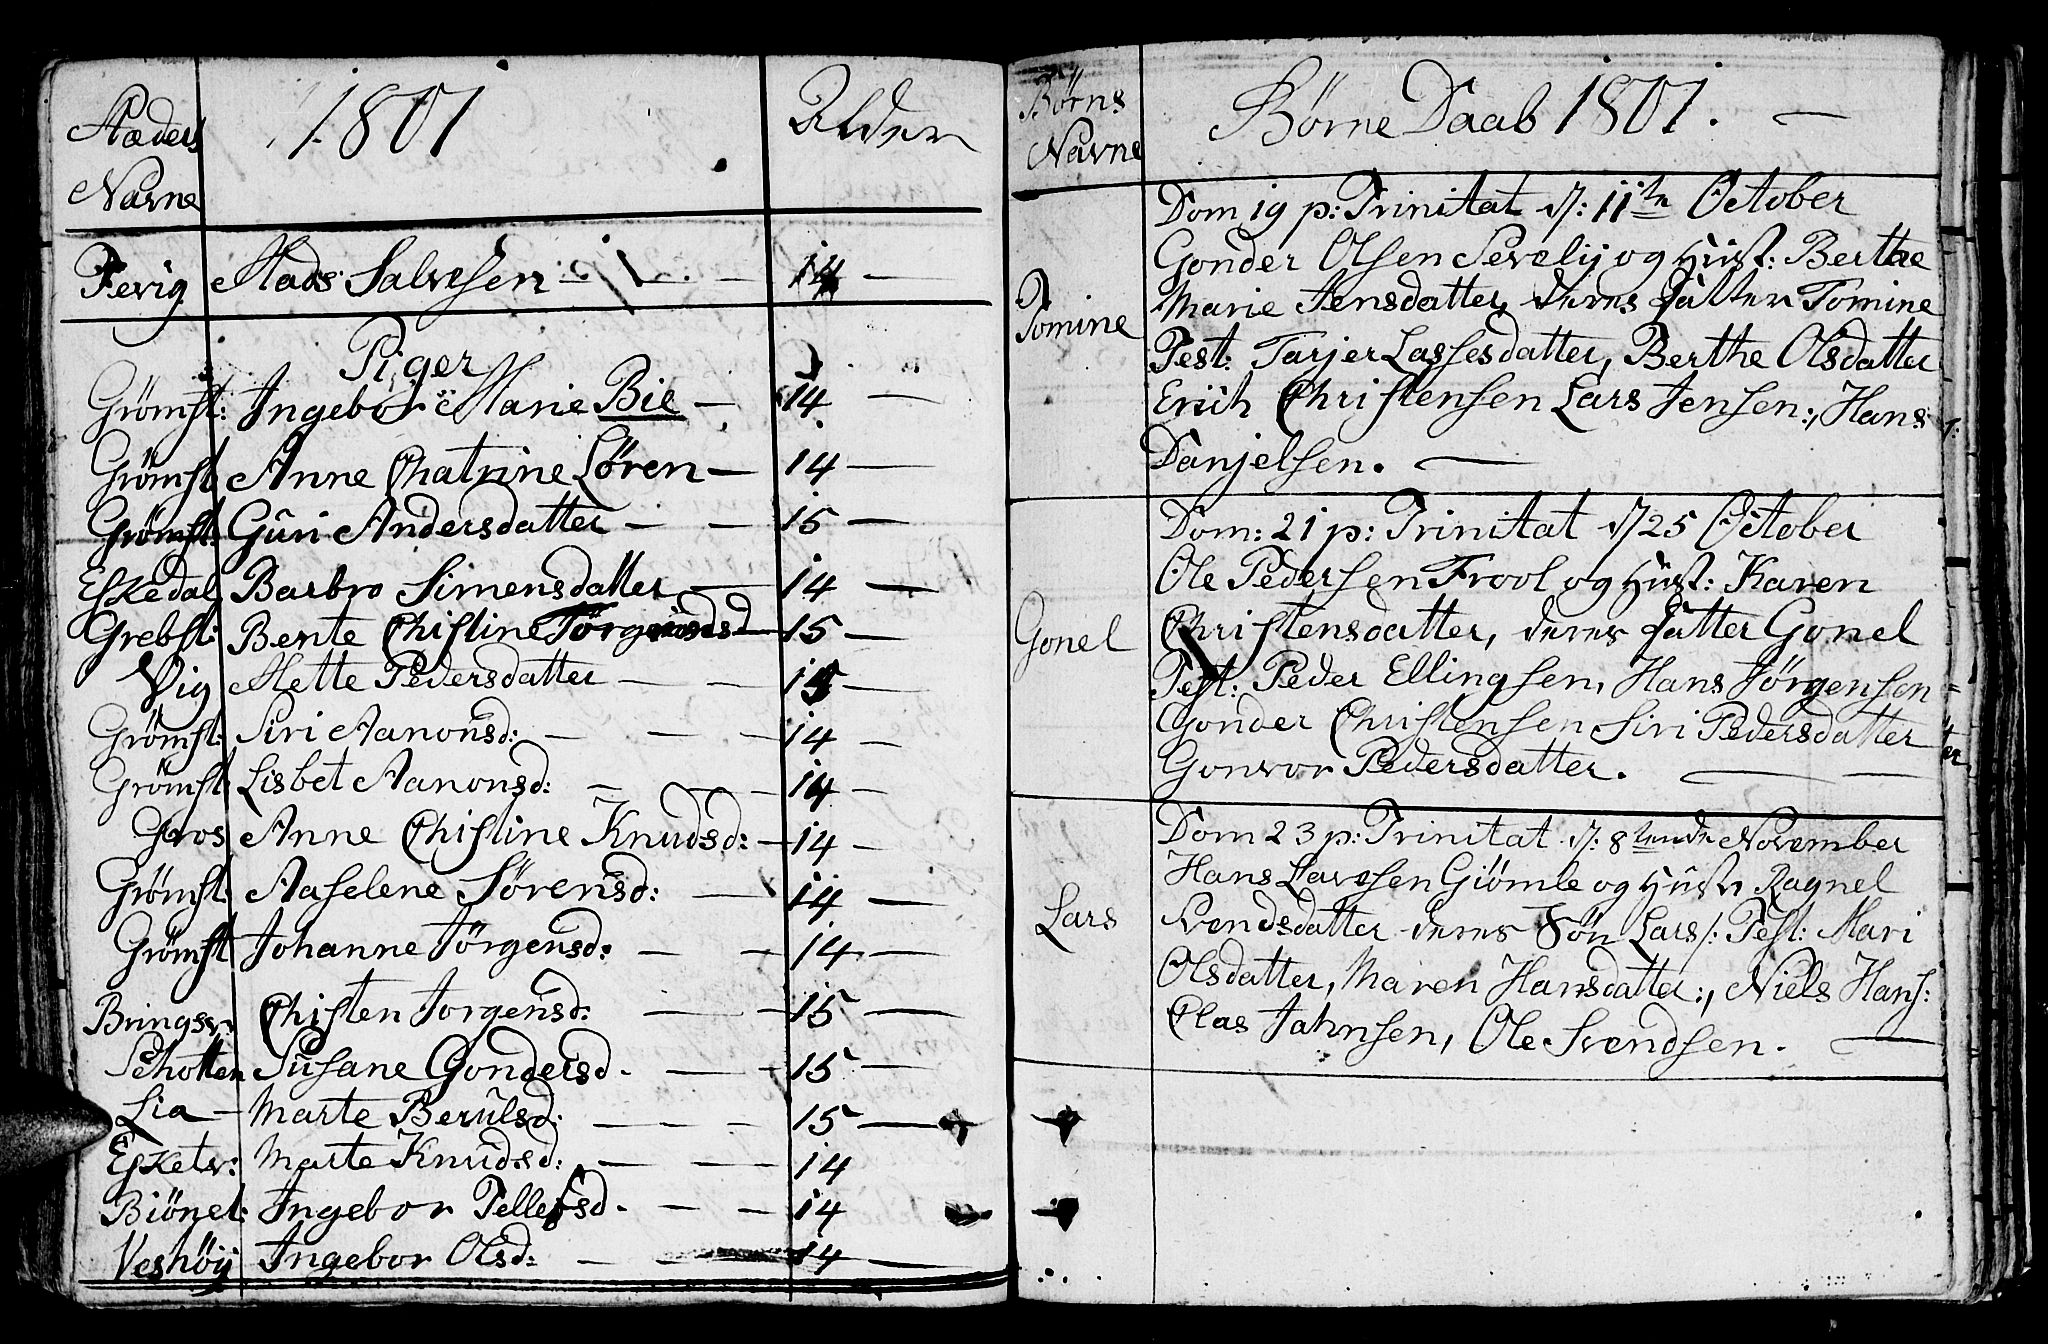 Stæders
Navne
1801
Alder
Fevig Mads Salvesen 14
Piger
Grömst: Ingebor Marie Bie 14
Grömst Anne Chatrine Sören 14
Grömst: Guri Andersdatter 15
Eskedal Barbro Simensdatter 14
Grebst: Bente Christine Törgersd 15
Vig Mette Pedersdatter 15
Grömst: Siri Aanonsd: 14
Grömst: Lisbet Aanonsd: 14
Gros Anne Christine Knudsd: 14
Grömst: Aaselene Sörensd: 14
Grömst Johanne Jörgensd: 14
Bringsv: Christen Jorgensd: 15
Schotten Susane Gondersd. 15
Lia Marte Berulsd: 15
Esketv: Marte Knudsd: 14
Biönet: Ingebor Tellefsd. 14
Veshöij Ingebor Olsd: 14
Börns
Navne
Börne Daab 1801.
Dom 19 p: Trinitat d: 11te October
Gonder Olsen Sevelij og Hust: Berthe
Tomine
Marie Jensdatter, deres Datter Tomine
Test: Tarjer Lassesdatter, Berthe Olsdatter
Erich Christensen Lars Jensen:, Hans
Danjelsen.
Dom: 21 p: Trinitat d 25 October
Ole Pedersen Frool og Hust: Karen
Gonel
Christensdatter, deres Datter Gonel
Test: Peder Ellingsen, Hans Jörgensen
Gonder Christensen Siri Pedersdatter
Gonvor Pedersdatter.
Dom 23 p: Trinitat d: 8tende November
Hans Larssen Giömle og Hustr Ragnel
Lars
Svendsdatter deres Sön Lars/: Test: Mari
Olsdatter, Maren Hansdatter:, Niels Hans:
Clas Jahnsen, Ole Svendsen.